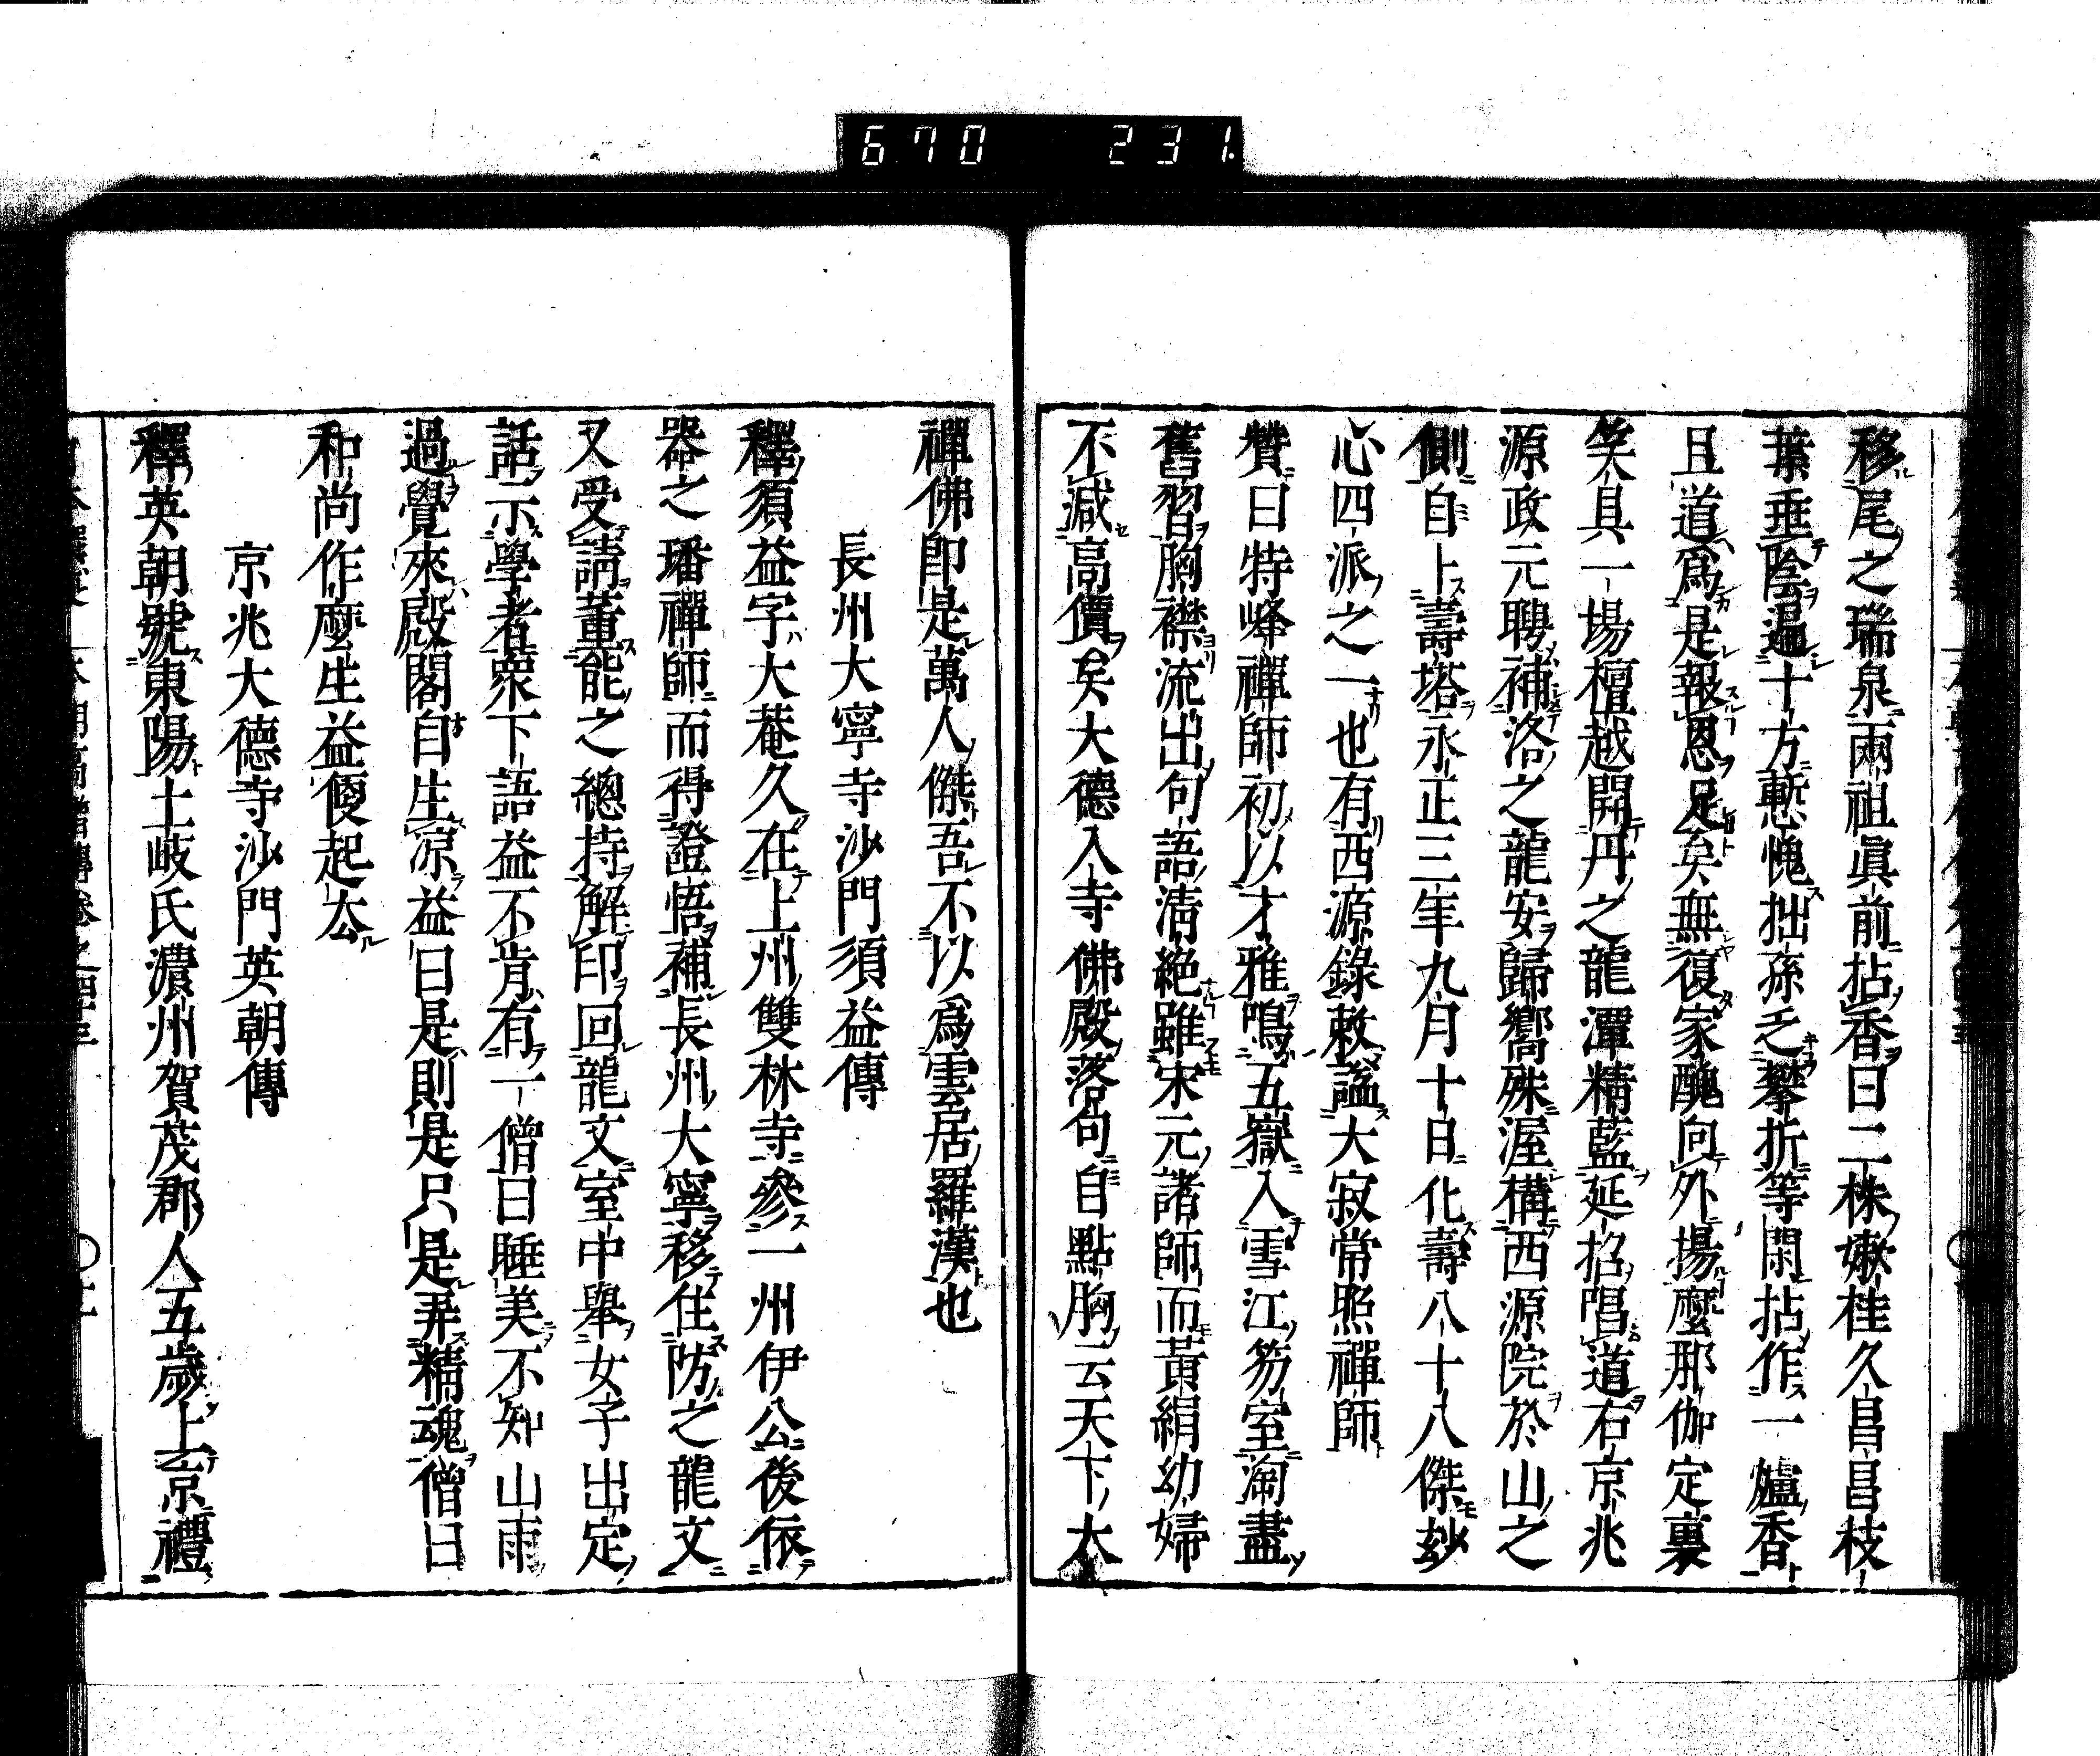 670 231.
移尾之瑞泉兩祖眞前拈香曰二株嫰桂久昌昌枝
葉垂陰遍十方慙愧拙孫乏攀折等閑拈作一爐香
且道爲是報恩足矣無復家醜向外揚麼那伽定裏
笑具一場檀越開丹之龍潭精藍延招唱道右京兆
源政元聘補洛之龍安歸嚮殊渥構西源院於山之
側自卜壽塔永正三年九月十日化壽八十八傑玅
心四派之一也有西源錄敕謚大寂常照禪師
贊曰特峰禪師初以才雅鳴五嶽入雪江笏室淘盡
舊習胸襟流出句語清絶雖宋元諸師而黃絹幼婦
不減高價矣大德入寺佛殿落句自點胸云天下太
禪佛卽是萬人傑吾不以爲雲居羅漢也
長州大寧寺沙門須益傳
釋須益字大菴久在上州雙林寺參一州伊公後依
器之璠禪師而得證悟補長州大寧移住防之龍文
又受請董能之總持解印回龍文室中舉女子出定
話示學者衆下語益不肯有一僧曰睡美不知山雨
過覺來殿閣自生凉益曰是則是只是弄精魂僧曰
和尚作麼生益便起去
京兆大德寺沙門英朝傳
釋英朝號東陽土岐氏濃州賀茂郡人五歲上京禮